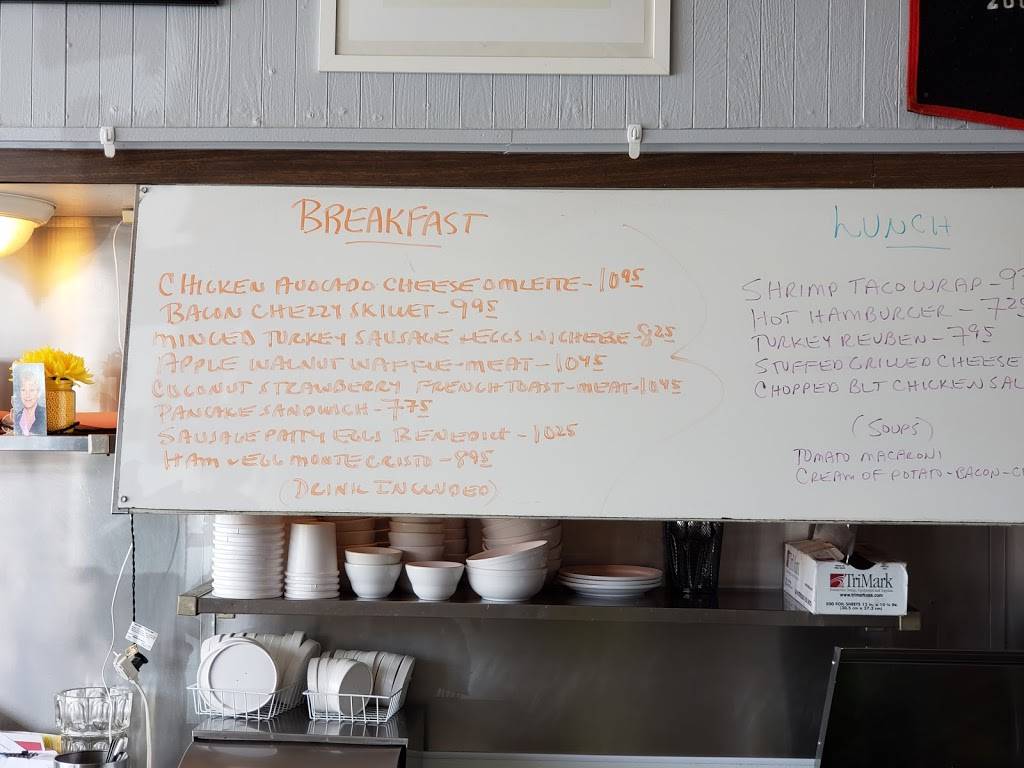 BREAKFAST
CHICKEN AVOCADO CHEESE OMLETTE - 10.95
BACON CHEZZY SKILLET - 9.95
MINCED TURKEY SAUSAGE + EGGS W/CHEESE - 8.25
APPLE WALNUT WAFFLE - MEAT - 10.95
COCONUT STRAWBERRY FRENCH TOAST - MEAT - 10.95
PANCAKE SANDWICH - 7.75
SAUSAGE PATTY EGGS BENEDICT - 10.25
HAM & EGG MONTE CRISTO - 8.95
(DRINK INCLUDED)
LUNCH
SHRIMP TACO WRAP - 9
HOT HAMBURGER - 7.25
TURKEY REUBEN - 7.95
STUFFED GRILLED CHEESE
CHOPPED BLT CHICKEN SAL
(SOUPS)
TOMATO MACARONI
CREAM OF POTATO - BACON - C
TriMark
www.trimarkusa.com